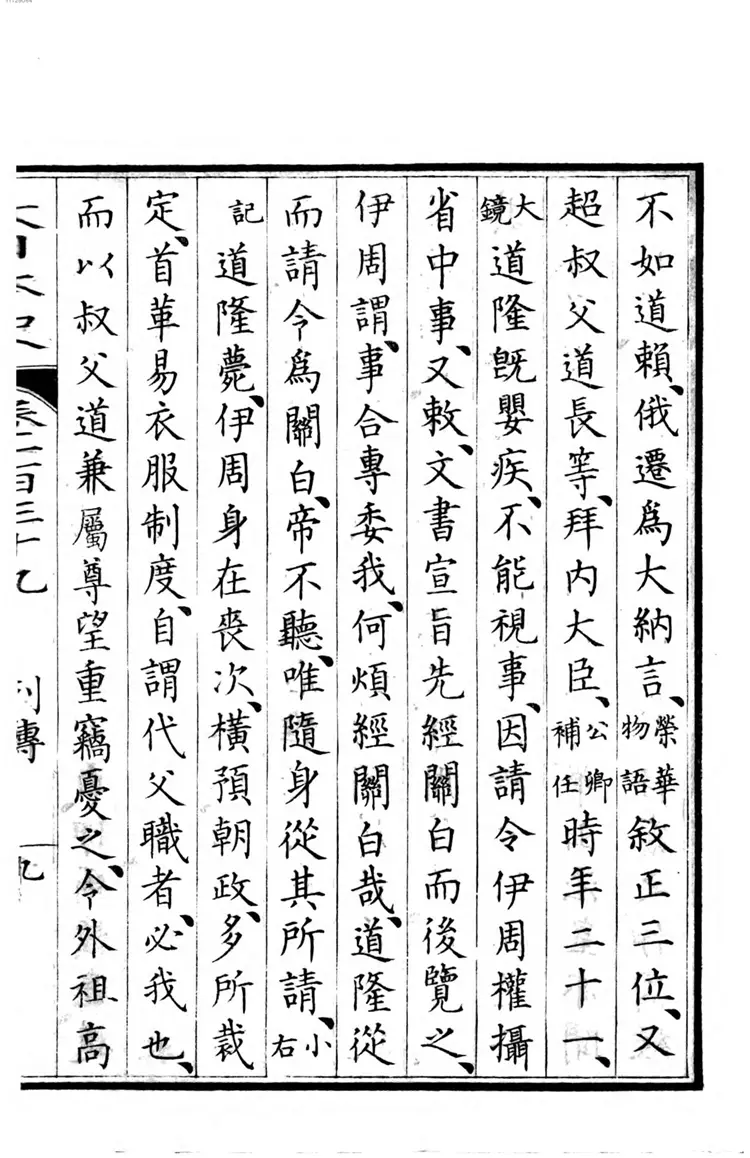 不如道賴、俄遷爲大納言、榮華物語敘正三位、又
超叔父道長等、拜内大臣、公卿補任時年二十一、
大鏡道隆既嬰疾、不能視事、因請令伊周權攝
省中事、又敕、文書宣旨先經關白而後覽之、
伊周謂、事合專委我、何煩經關白哉、道隆從
而請令爲關白、帝不聽、唯隨身從其所請、小右
記道隆薨、伊周身在喪次、橫預朝政、多所裁
定、首革易衣服制度、自謂代父職者、必我也、
而以叔父道兼屬尊望重竊憂之、令外祖高
大日本史 卷一百三十九 列傳 九